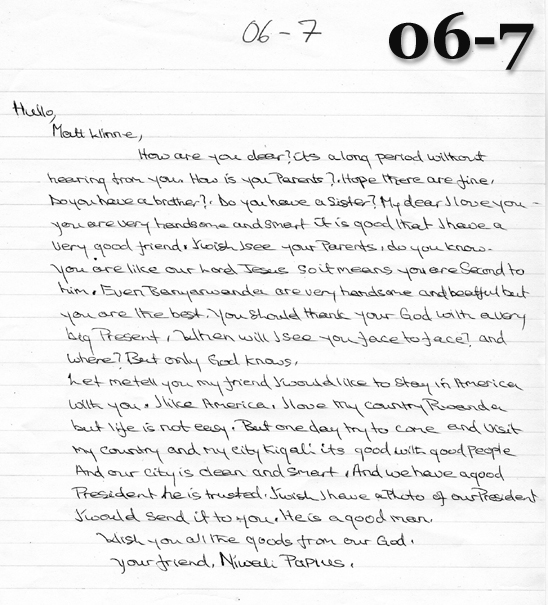 06-7
06-7
Hello,
Matt Winnie,
How are you dear? its a long period without
hearing from you. How is you Parents?. Hope there are fine.
Do you have a brother?. Do you have a Sister? My dear I love you -
you are very handsome and smart it is good that I have a
very good friend. I wish I see your Parents, do you know.
you are like our Lord Jesus so it means you are Second to
him. Even Banyarwanda are very handsome and beatful but
you are the best. You should thank your God with a very
big Present. When will I see you face to face? and
where? But only God knows.
Let me tell you my friend I would like to stay in America
with you. I like America. I love my country Rwanda
but life is not easy. But one day try to come and visit
my country and my city Kigali its good with good People
And our city is clean and smart. And we have a good
President he is trusted. I wish I have a Photo of our President
I would send it to you. He is a good man.
Wish you all the goods from our God.
your friend, Niwali Papius.